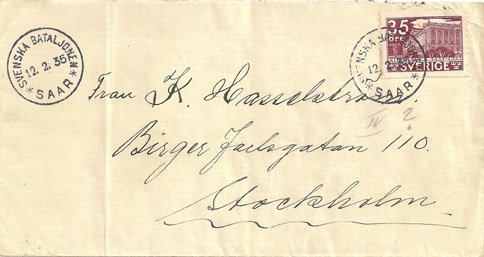 SVENSKA BATALJONEN
12. 2. 35
* SAAR *
35
ÖRE
SVERIGE
SVENSKA BATALJONEN
12. 2. 35
* SAAR *
Fru K. Hasselström.
IV ?
Birger Jarlsgatan 110.
Stockholm